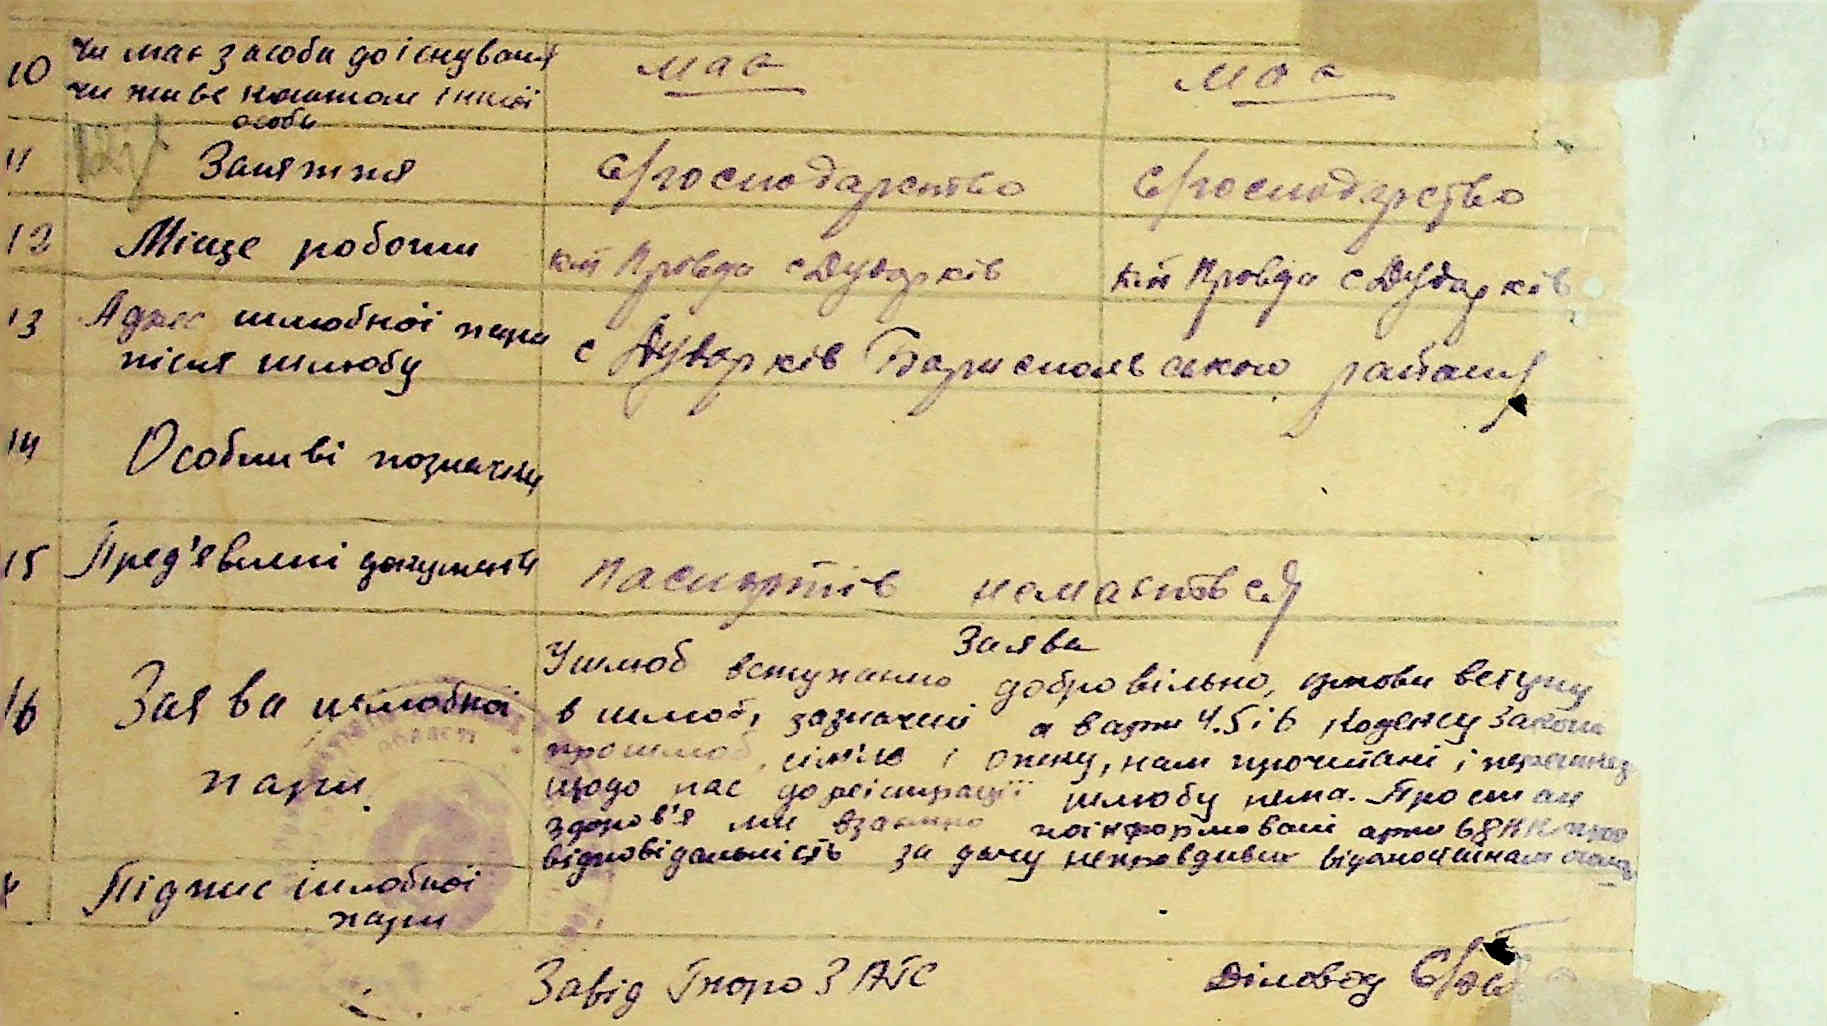 10 чи має засоби до існування має має
чи живе коштом іншої
особи
11 Заняття с/господарство с/господарство
12 Місце роботи к-п Правда с Дударків к-п Правда с Дударків
13 Адрес шлюбної пари с Дударків Бориспольського району
після шлюбу
14 Особливі позначки
15 Пред'явлені документи паспортів немається
Заява
16 Заява шлюбної У шлюб вступаємо добровільно, умови вступу
пари в шлюб, зазначені в арти 4.5 і 6 Кодексу Законів
про шлюб, сім'ю і опіку, нам прочитані і перешкод
щодо нас до реістрації шлюбу нема. Про стан
здоров'я ми взаємно поінформовані арти 68 КК про
відповідальність за дачу неправдивих відомостей нам
Підпис шлюбної
пари
області
Завід Бюро ЗАГС Діловод